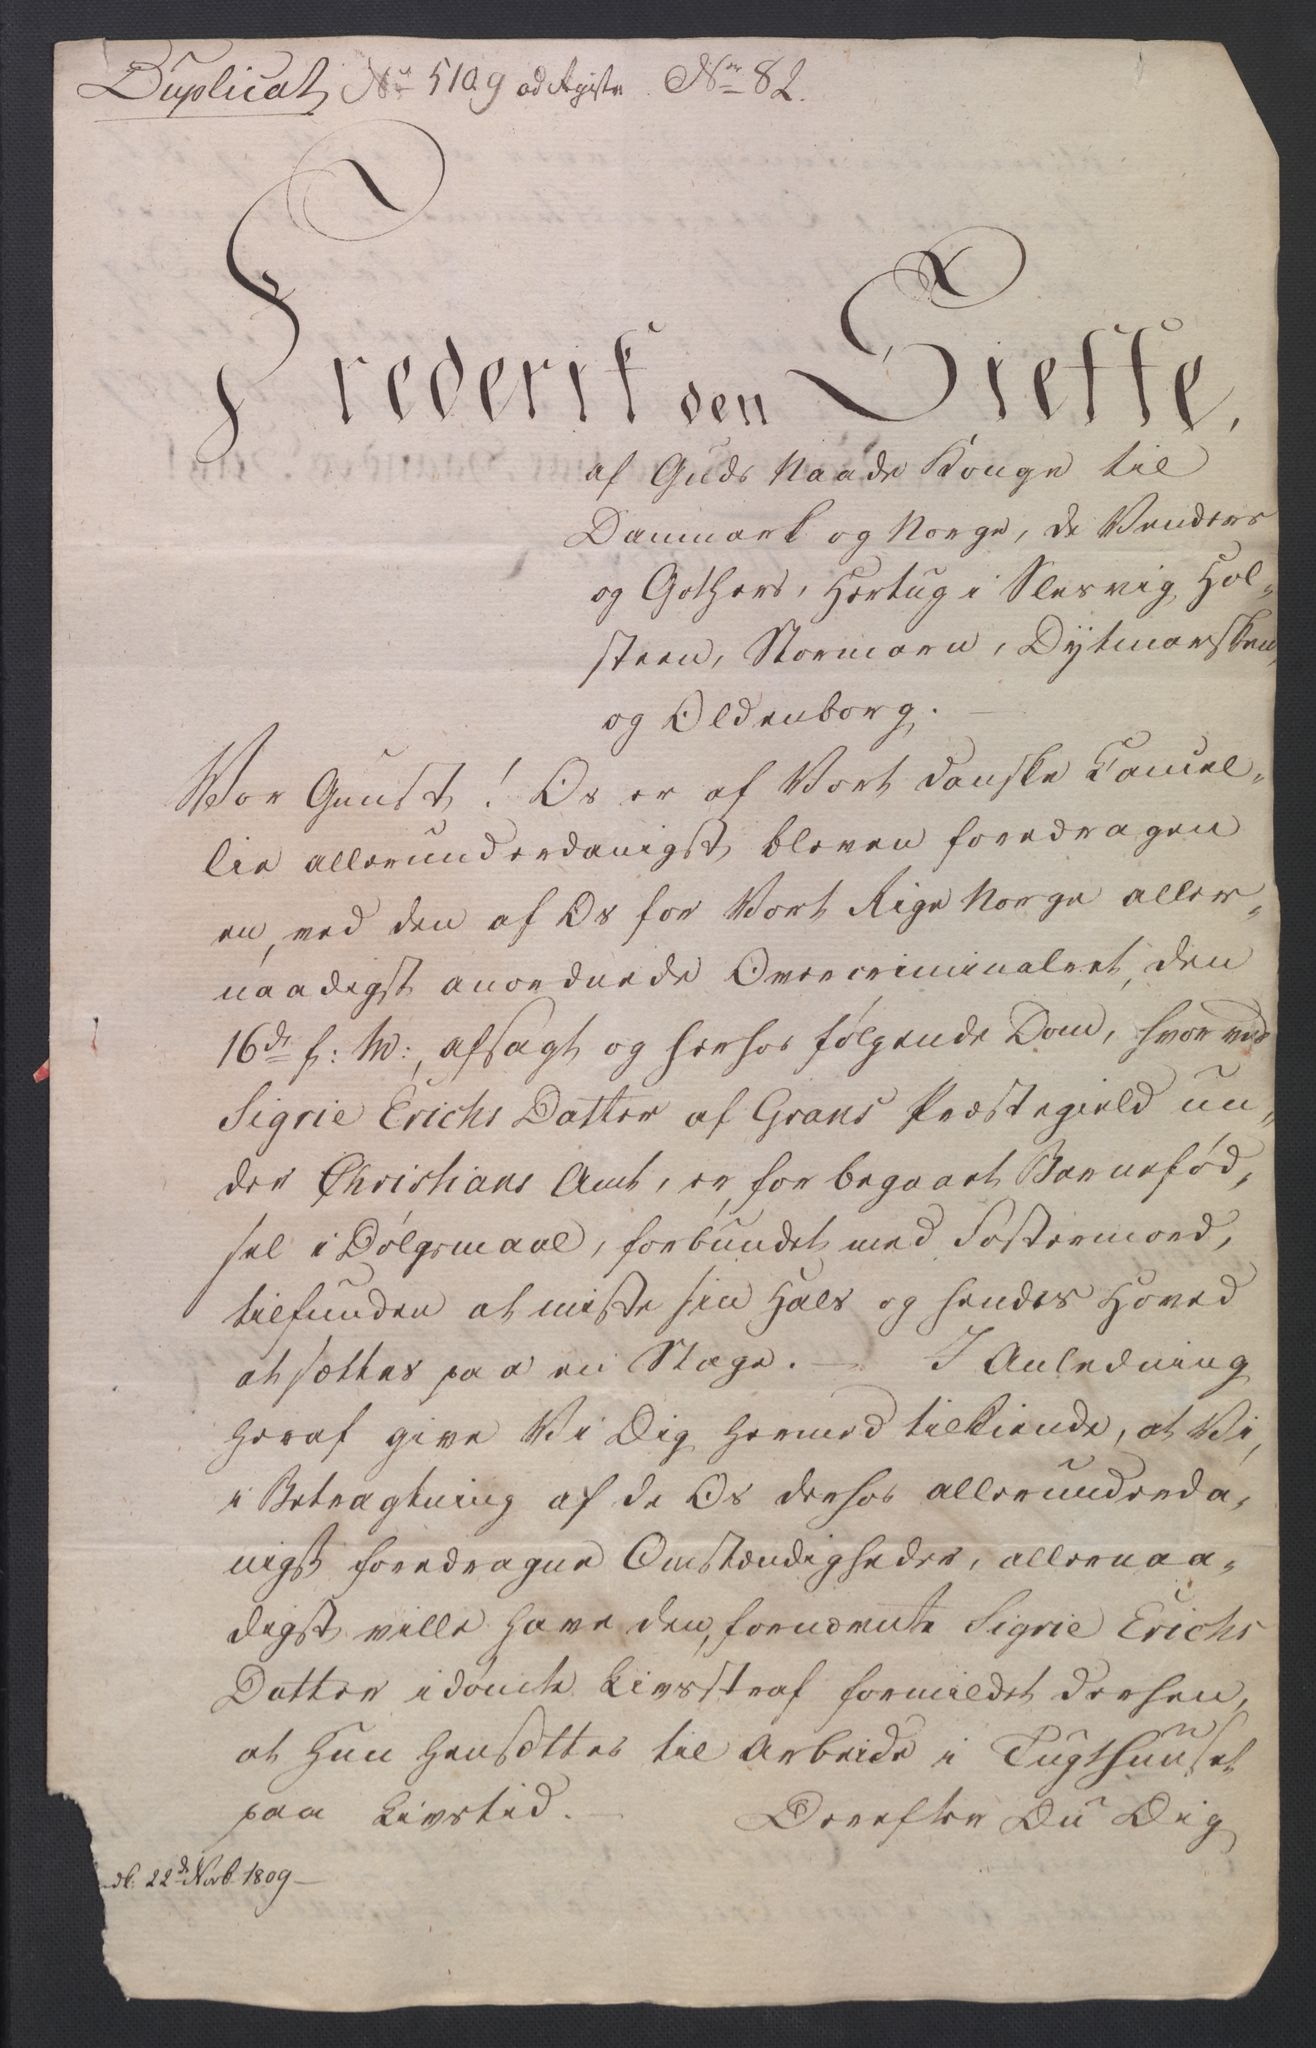 Duplicat No 5109 ad Registr. Nr 82.
Frederik den Siette,
af Guds Naade Konge til
Danmark og Norge, de Venders
og Gothers, Hertug i Slesvig, Hol-
steen, Stormarn, Dytmarsken,
og Oldenborg. —
Vor Gunst! Os er af Vort danske Cancel-
lie allerunderdanigst bleven foredragen
en, ved den af Os for Vort Rige Norge aller-
naadigst anordnede Overcriminalret, den
16de f: M:, afsagt og herhos følgende Dom, hvorved
Sigrie Erichs Datter af Grans Præstegield un-
der Christians Amt, er, for begaaet Barnefød-
sel i Dølgsmaal, forbundet med Fostermord,
tilfunden at miste sin Hals og hendes Hoved
at sættes paa en Stage. — I Anledning
heraf give Vi Dig hermed tilkiende, at Vi,
i Betragtning af de Os derhos allerunderda-
nigst foredragne Omstændigheder, allernaa-
digst ville have den, fornævnte Sigrie Erichs
Datter idømte Livsstraf formildet derhen,
at hun hensættes til Arbeide i Tugthuuset
paa Livstid. — Derefter Du Dig
22de Novb 1809 —